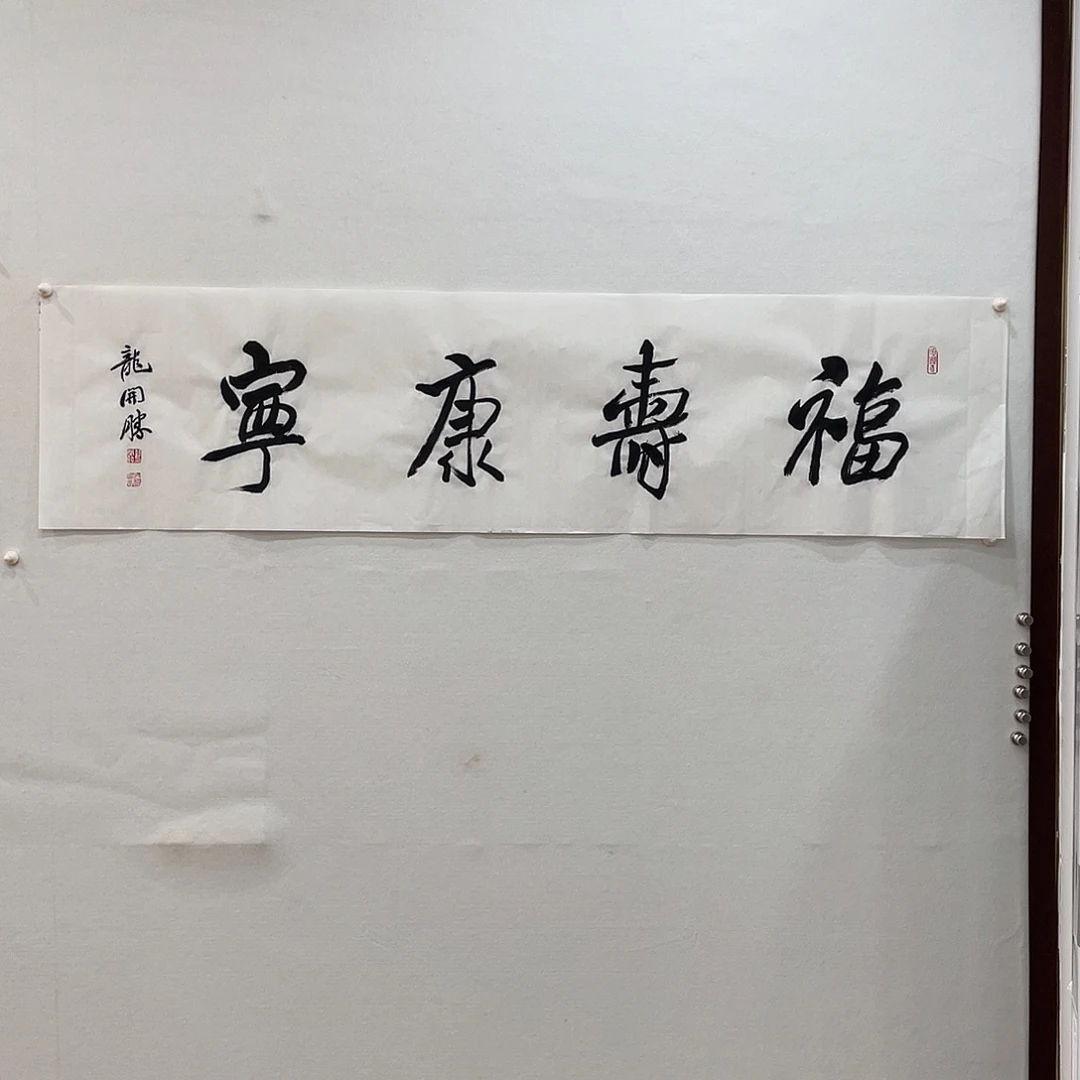 福壽康寧
龍開勝